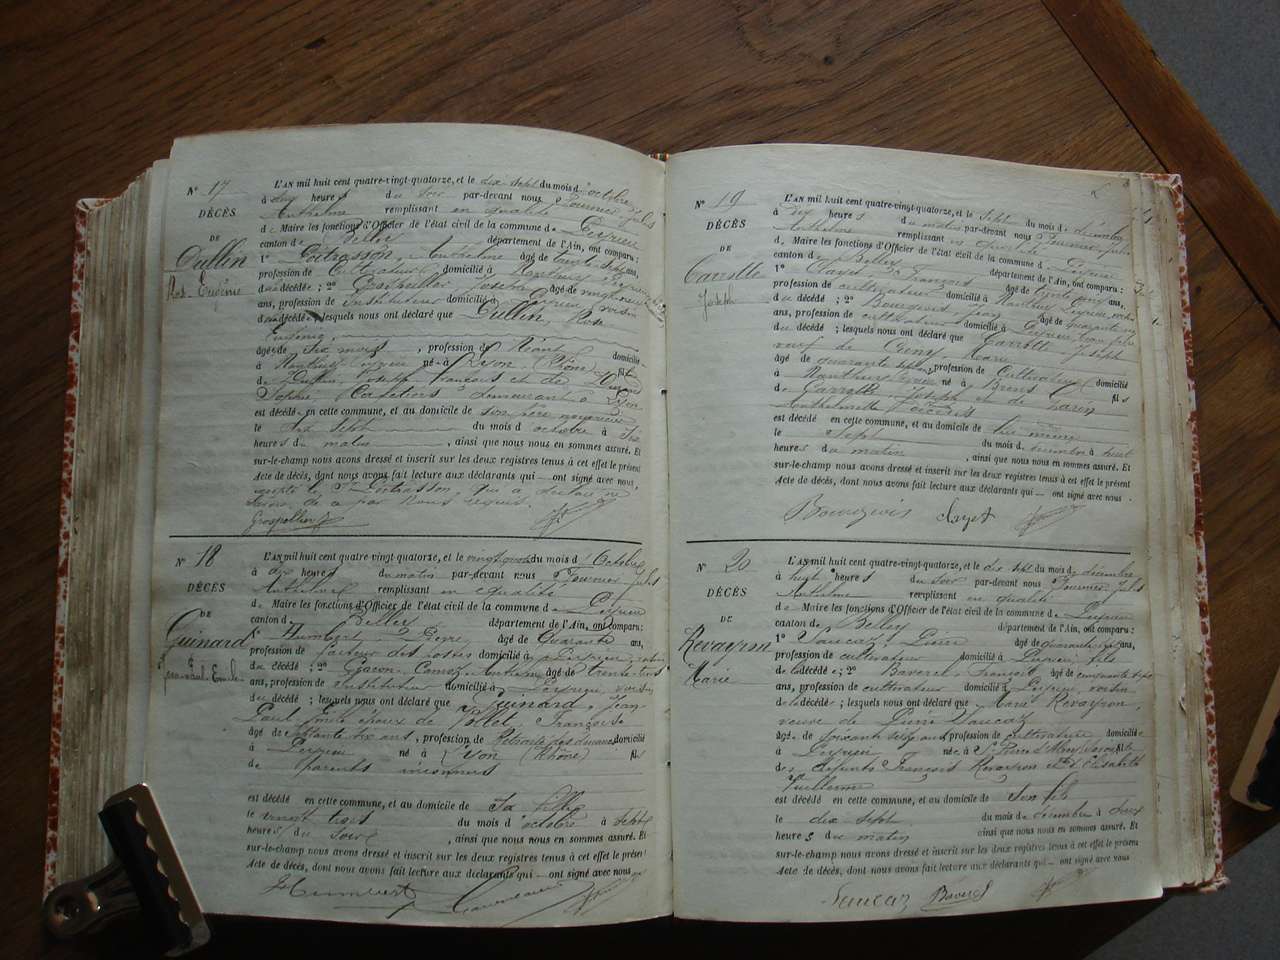 N° 17
DÉCÈS
DE
Dullin
Rose Eugénie
L'AN mil huit cent quatre-vingt-quatorze, et le dix sept du mois d'octobre
à dix heures du soir par-devant nous Fournier Jules
Anthelme remplissant en qualité
de Maire les fonctions d'Officier de l'état civil de la commune de Peyrieu
canton de Belley département de l'Ain, ont comparu :
1° Anthelme âgé de trente-sept ans,
profession de Cultivateur domicilié à
du décédé ; 2° Grospellier Joseph âgé de vingt-neuf
ans, profession de Instituteur domicilié à Peyrieu voisin
du décédé ; lesquels nous ont déclaré que Dullin, Rose
Eugénie,
âgée de six mois, profession de Néant domiciliée
à née à Lyon (Rhône) fille
de Dullin, Joseph François et de
Sophie, demeurant à Lyon
est décédée en cette commune, et au domicile de son père nourricier
le dix sept du mois d'octobre à six
heures du matin, ainsi que nous nous en sommes assuré. Et
sur-le-champ nous avons dressé et inscrit sur les deux registres tenus à cet effet le présent
Acte de décès, dont nous avons fait lecture aux déclarants qui ont signé avec nous,
excepté le qui a déclaré ne
savoir de ce par nous requis.
Grospellier
N° 18
DÉCÈS
DE
Guinard
Jean Paul Emile
L'AN mil huit cent quatre-vingt-quatorze, et le vingt quatre du mois d'Octobre
à dix heures du matin par-devant nous Fournier Jules
Anthelme remplissant en qualité
de Maire les fonctions d'Officier de l'état civil de la commune de Peyrieu
canton de Belley département de l'Ain, ont comparu :
1° Humbert Pierre âgé de Quarante ans,
profession de facteur des postes domicilié à Peyrieu, voisin
du décédé ; 2° Anthelme âgé de trente-trois
ans, profession de Instituteur domicilié à Peyrieu, voisin
du décédé ; lesquels nous ont déclaré que Guinard, Jean
Paul, Emile époux de Françoise
âgé de septante six ans, profession de Retraité des douanes domicilié
à Peyrieu né à Lyon (Rhône) fils
de parents inconnus
est décédé en cette commune, et au domicile de Sa fille
le vingt trois du mois d'octobre à sept
heures du soir, ainsi que nous nous en sommes assuré. Et
sur-le-champ nous avons dressé et inscrit sur les deux registres tenus à cet effet le présent
Acte de décès, dont nous avons fait lecture aux déclarants qui ont signé avec nous
Humbert
N° 19
DÉCÈS
DE
Carrotte
Joseph
L'AN mil huit cent quatre-vingt-quatorze, et le Sept du mois de décembre
à dix heures du matin par-devant nous Fournier Jules
Anthelme remplissant en qualité
de Maire les fonctions d'Officier de l'état civil de la commune de Peyrieu
canton de Belley département de l'Ain, ont comparu :
1° Clayet François âgé de trente cinq ans,
profession de cultivateur domicilié à
du décédé ; 2° Bourgeois, Jean âgé de quarante
ans, profession de cultivateur domicilié à Peyrieu
du décédé ; lesquels nous ont déclaré que Carrotte Joseph
veuf de Marie
âgé de quarante ans, profession de Cultivateur domicilié
à né à Brens fils
de Carrotte, Joseph et de
Anthelmette
est décédé en cette commune, et au domicile de lui même
le Sept du mois de décembre à huit
heures du matin, ainsi que nous nous en sommes assuré. Et
sur-le-champ nous avons dressé et inscrit sur les deux registres tenus à cet effet le présent
Acte de décès, dont nous avons fait lecture aux déclarants qui ont signé avec nous.
Bourgeois Clayet
N° 20
DÉCÈS
DE
Revayron
Marie
L'AN mil huit cent quatre-vingt-quatorze, et le dix sept du mois de décembre
à huit heures du soir par-devant nous Fournier Jules
Anthelme remplissant en qualité
de Maire les fonctions d'Officier de l'état civil de la commune de Peyrieu
canton de Belley département de l'Ain, ont comparu :
1° Saucaz, Pierre âgé de quarante ans,
profession de cultivateur domicilié à Peyrieu fils
de la décédée ; 2° Baverel, François âgé de cinquante sept
ans, profession de cultivateur domicilié à Peyrieu, voisin
de la décédée ; lesquels nous ont déclaré que Marie Revayron,
veuve de Pierre Saucaz
âgée de soixante seize ans, profession de cultivateur domiciliée
à Peyrieu née à fille
des défunts François Revayron et d'Elisabeth
Vuillerme
est décédée en cette commune, et au domicile de Son fils
le dix sept du mois de décembre à deux
heures du matin ainsi que nous nous en sommes assuré. Et
sur-le-champ nous avons dressé et inscrit sur les deux registres tenus à cet effet le présent
Acte de décès, dont nous avons fait lecture aux déclarants qui ont signé avec nous
Saucaz Baverel